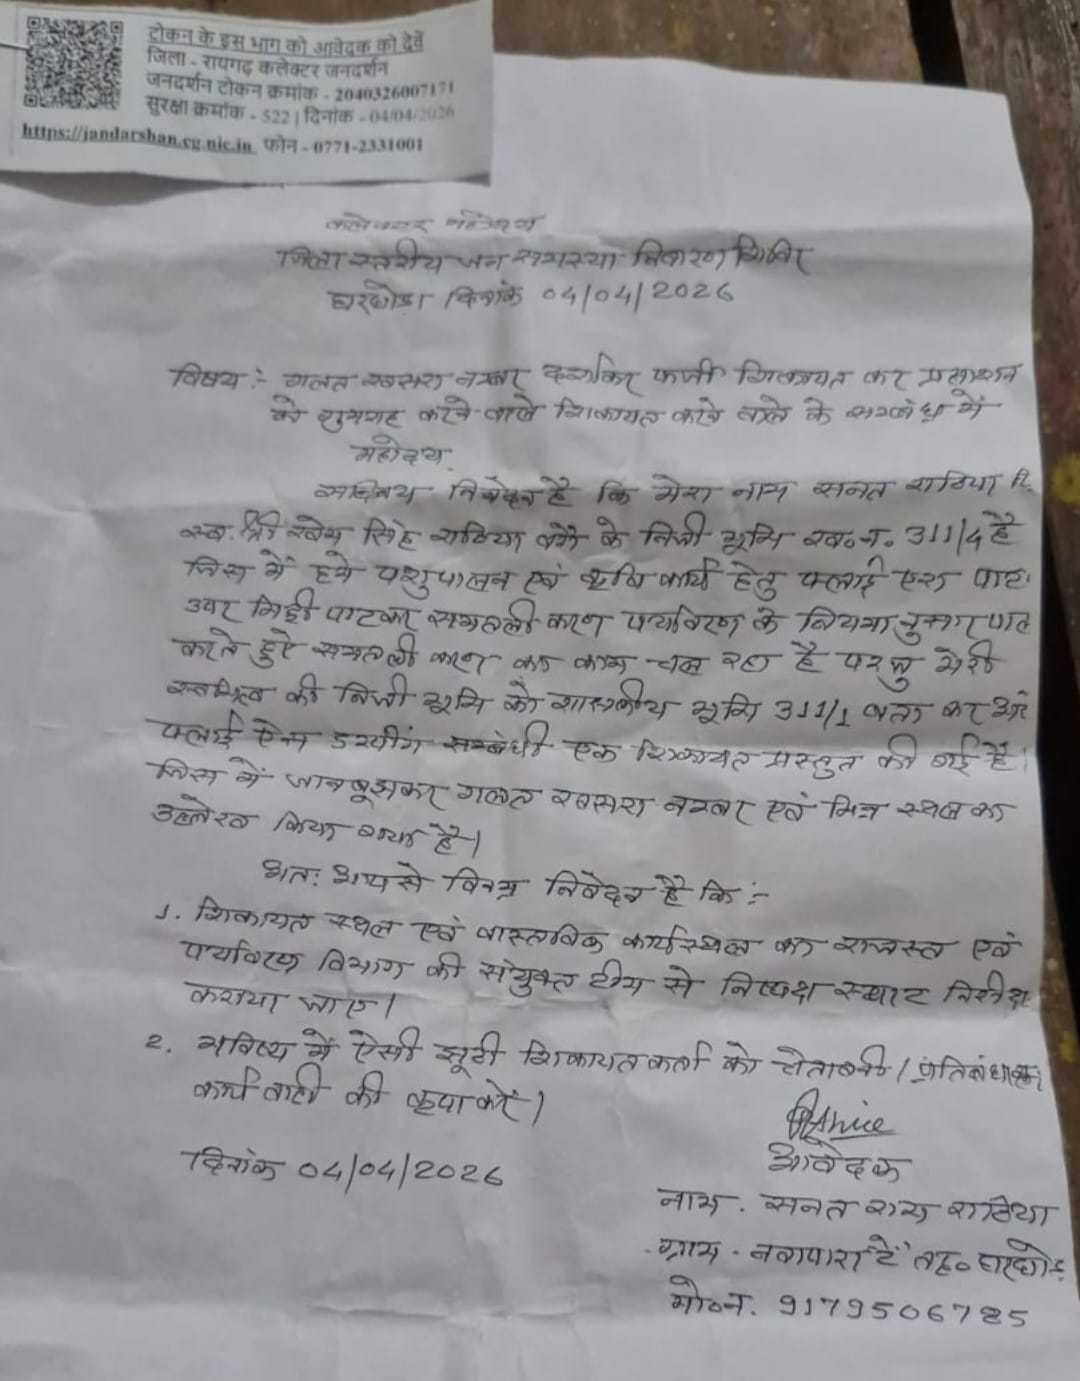 टोकन के इस भाग को आवेदक को देवें
जिला - रायगढ़ कलेक्टर जनदर्शन
जनदर्शन टोकन क्रमांक - 2040326007171
सुरक्षा क्रमांक - 522 | दिनांक - 04/04/2026
https://jandarshan.cg.nic.in फोन - 0771-2331001
कलेक्टर महोदय
जिला स्तरीय जन समस्या निवारण शिविर
घरघोडा दिनांक 04/04/2026
विषय :- गलत खसरा नम्बर दर्शाकर फर्जी शिकायत कर प्रशासन
को गुमराह करने वाले शिकायत करने वाले के सम्बंध में
महोदय.
सविनय निवेदन है कि मेरा नाम सनत राठिया पि.
स्व. श्री खेम सिंह राठिया के निजी भूमि ख॰न॰ 311/4 है
जिस में हमे पशुपालन एवं कृषि कार्य हेतु फ्लाई एश पाट
उपर मिट्टी पाटकर समतली करण पर्यावरण के नियमानुसार पाट
करते हुऐ समतली करण का काम चल रहा है परन्तु मेरी
स्वमित्व की निजी भूमि को शासकीय भूमि 311/1 बता कर और
फ्लाई ऐस डम्पींग सम्बंधी एक शिकायत प्रस्तुत की गई है।
जिस में जानबूझकर गलत खसरा नम्बर एवं भिन्न स्थल का
उल्लेख किया गया है।
अत: आप से विनम्र निवेदन है कि :-
1. शिकायत स्थल एवं वास्तविक कार्यस्थल का राजस्व एवं
पर्यावरण विभाग की संयुक्त टीम से निष्पक्ष स्थल निरीक्षण
कराया जाए।
2. भविष्य में ऐसी झूठी शिकायतकर्ता को चेतावनी / प्रतिबंधात्मक
कार्यवाही की कृपा करें।
आवेदक
दिनांक 04/04/2026
नाम . सनत राम राठिया
ग्राम - नवापारा टें तह॰ घरघोडा
मो॰न. 9179506785